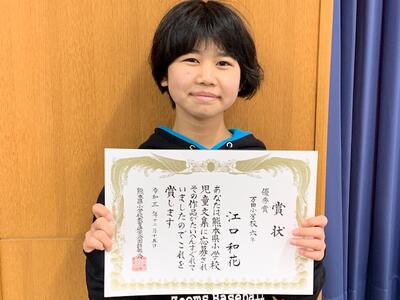 賞状
優秀賞
万田小学校六年
江口和花
あなたは熊本県小学校
児童文集に応募され
その作品がたいへんすぐれて
いましたのでこれを
賞します
令和三年十二月十五日
Zooms Baseball